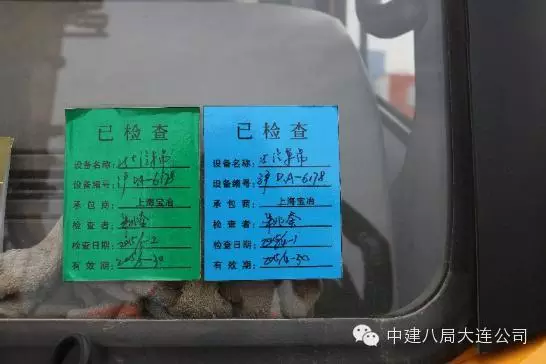 已检查
设备名称：汽车吊
设备编号：沪DA-6178
承包商：上海宝冶
检查者：
检查日期：2015/5-2
有效期：2015/5-30
已检查
设备名称：汽车吊
设备编号：沪D.A-6178
承包商：上海宝冶
检查者：
检查日期：
有效期：2015/4-30
中建八局大连公司